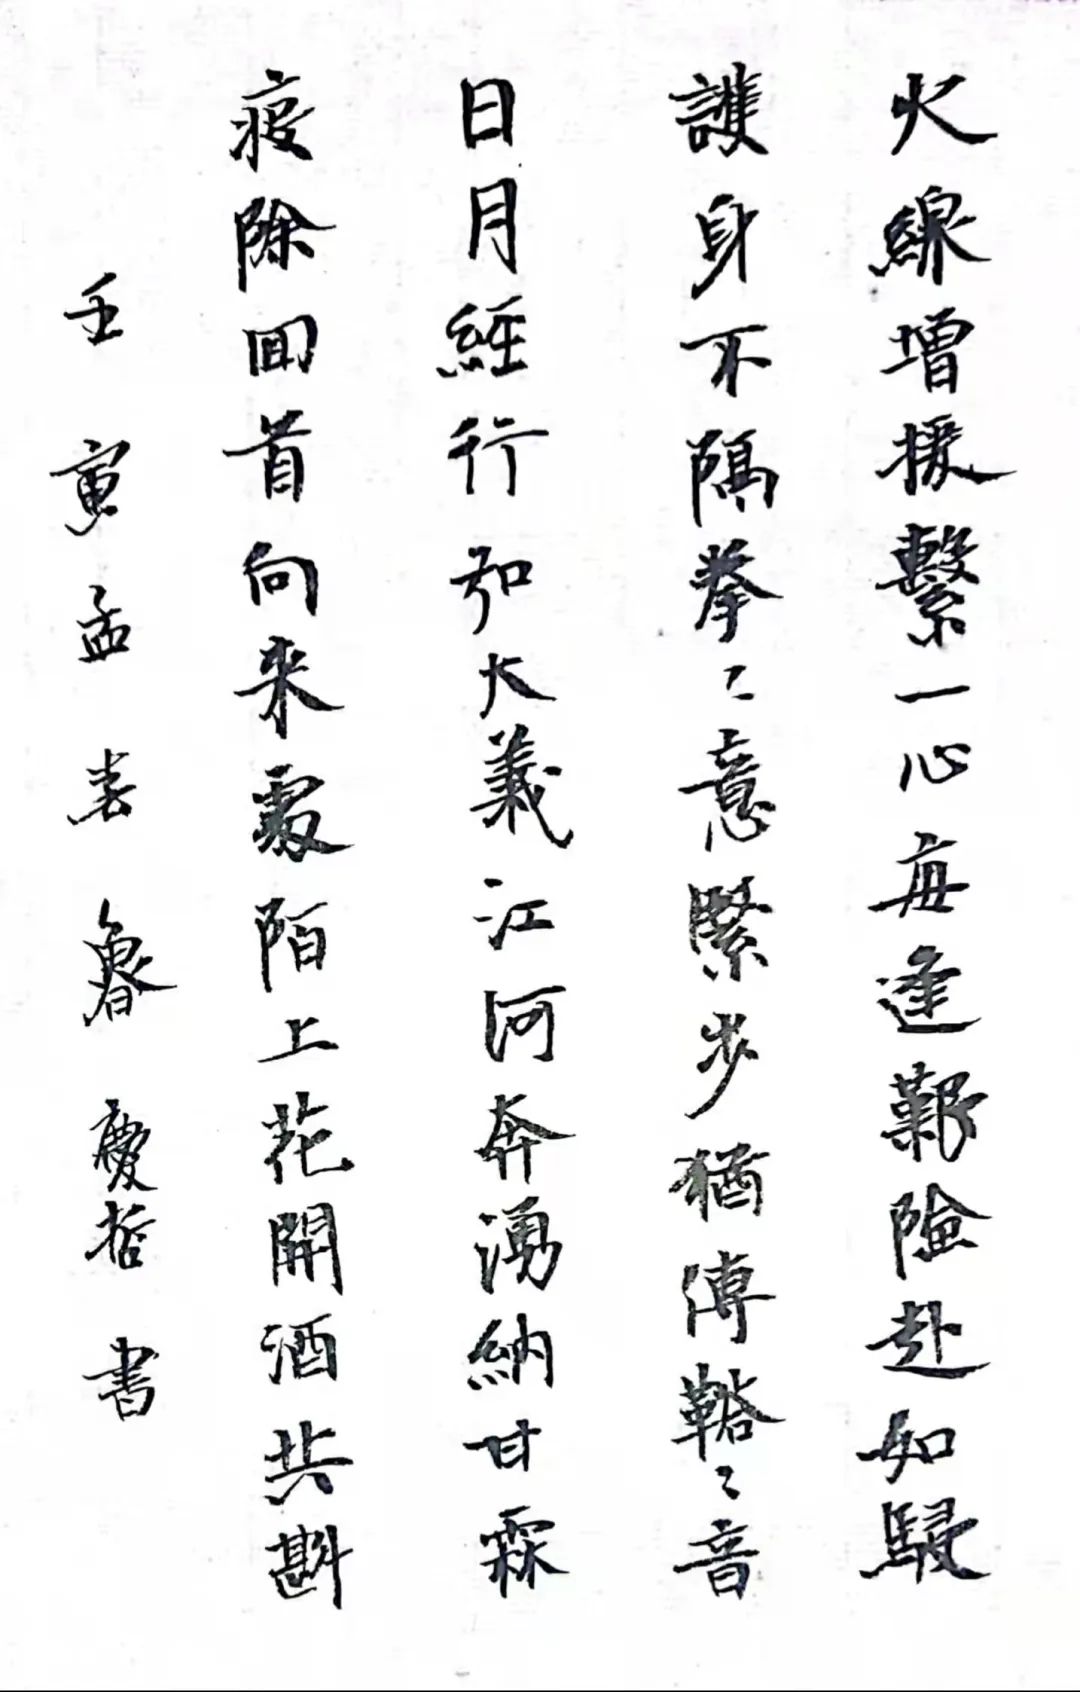 火線增援繫一心毎逢艱險赴如駸
護身不隔拳〻意緊步猶傳鞳〻音
日月經行弘大義江河奔湧納甘霖
疫除回首向来處陌上花開酒共斟
壬寅孟春魯慶哲書